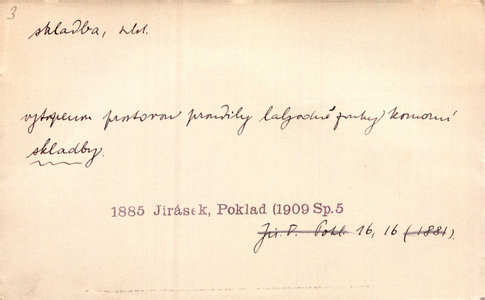 3
skladba, subst.
vytopenou prostorou proudily lahodné zvuky komorní
skladby.
1885 Jirásek, Poklad (1909 Sp.5
Jir. P. Pokl. 16, 16 (1881).